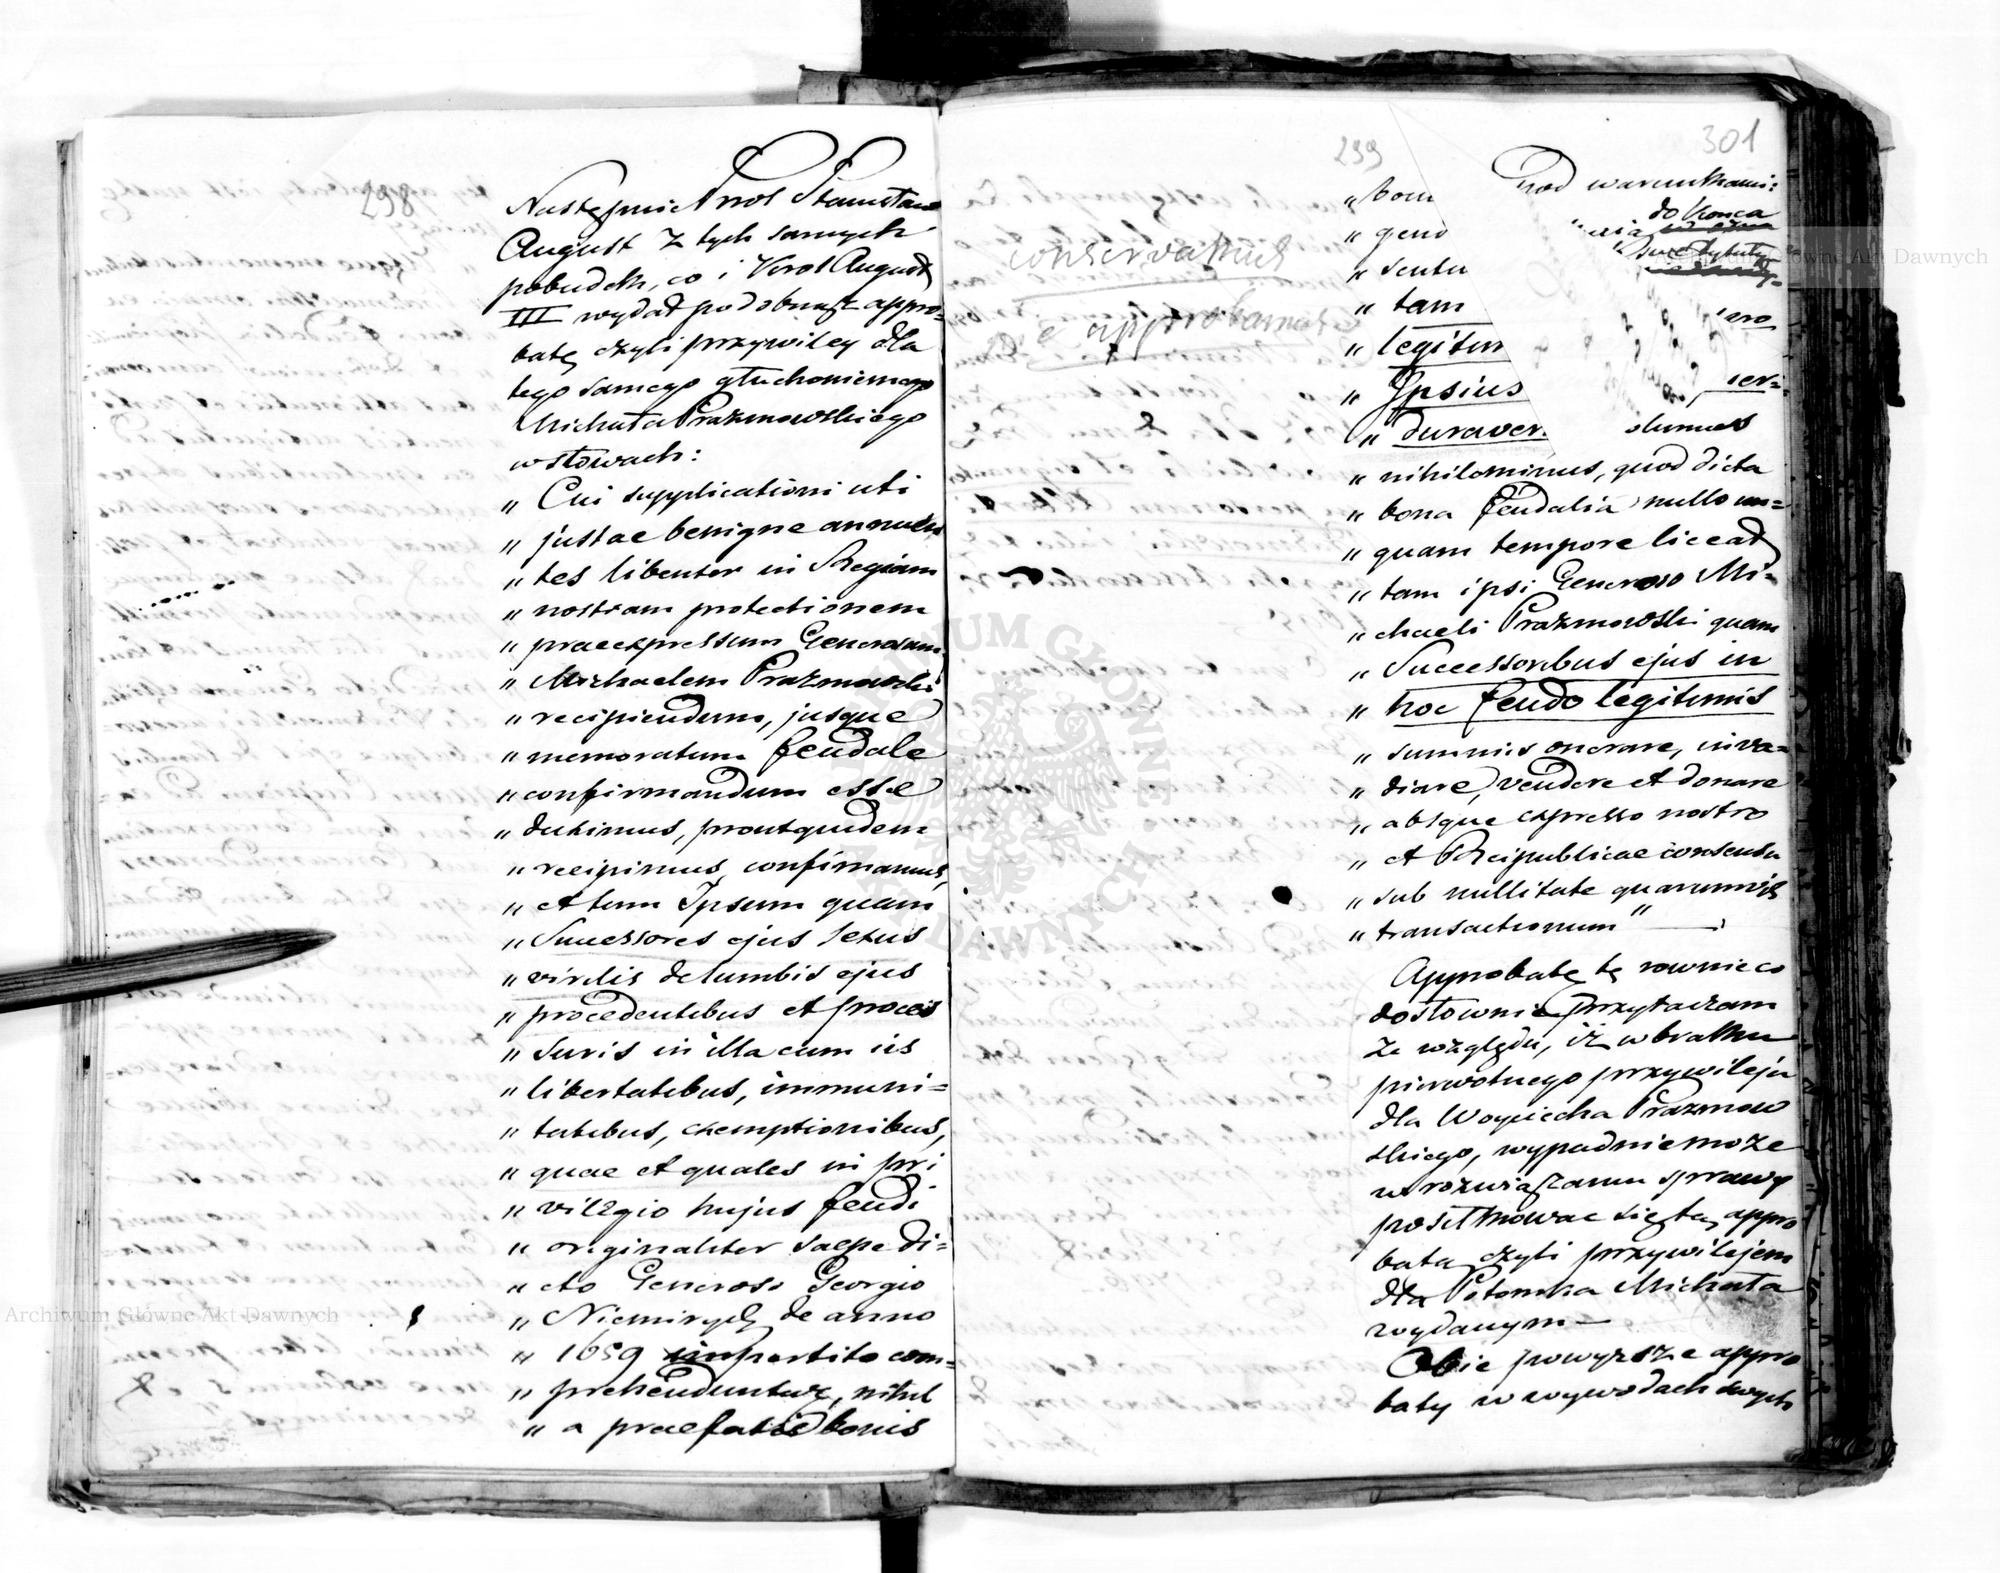 298
Następnie Krol Stanisław
August z tych samych
pobudek, co i Krol August
III wydał podobnąż appro=
batę czyli przywiley dla
tego samego głuchoniemego
Michała Prażmowskiego
w słowach:
„ Cui supplicationi uti
„ justae benigne annuen
„ tes libenter in Regiam
„ nostram protectionem
„ praeexpressum Generosum
„ Michaelem Prażmowski
„ recipiendum, jusque
„ memoratum feudale
„ confirmandum esse
„ duximus, proutquidem
„ recipimus, confirmamus,
„ et tum Ipsum quam
„ Successores ejus sexus
„ virilis de lumbis ejus
„ procedentibus et
„ Juris in illa cum iis
„ libertatibus, immuni=
„ tatibus, exemptionibus,
„ quae et quales in pri
„ vilegio hujus feudi
„ originaliter saepe di=
„ cto Generoso Georgio
„ Niemirycz de anno
„ 1659 impertito com=
„ prehenduntur, nihil
„ a praefatis bonis
299
301
conservamus
e approbamus
„ bom pod warunkami:
„ geno do Konca
„ sentu
„ tam
„ legitim
„ Ipsius
„ duraver. olumus
„ nihilominus, quod dicta
„ bona feudalia nullo un=
„ quam tempore liceat
„ tam ipsi Generoso Mi=
„ chaeli Prażmowski quam
„ Successoribus ejus in
„ hoc feudo legitimis
„ summis onerare, inva=
„ diare, vendere et donare
„ absque expresso nostro
„ et Reipublicae consensu
„ sub nullitate quarumvis
„ transactionum“ —
Approbatę tę rownie co
dosłownie przytaczam
ze względu, iż w braku
pierwotnego przywileju
dla Woyciecha Prażmow
skiego, wypadnie może
w rozwiązaniu sprawy
posiłkować się tą appro
batą czyli przywilejem
dla Potomka Michała
wydanym —
Obie powyższe appro
baty w wywodach swych
Archiwum Główne Akt Dawnych
Archiwum Główne Akt Dawnych
ARCHIWUM GŁÓWNE AKT DAWNYCH